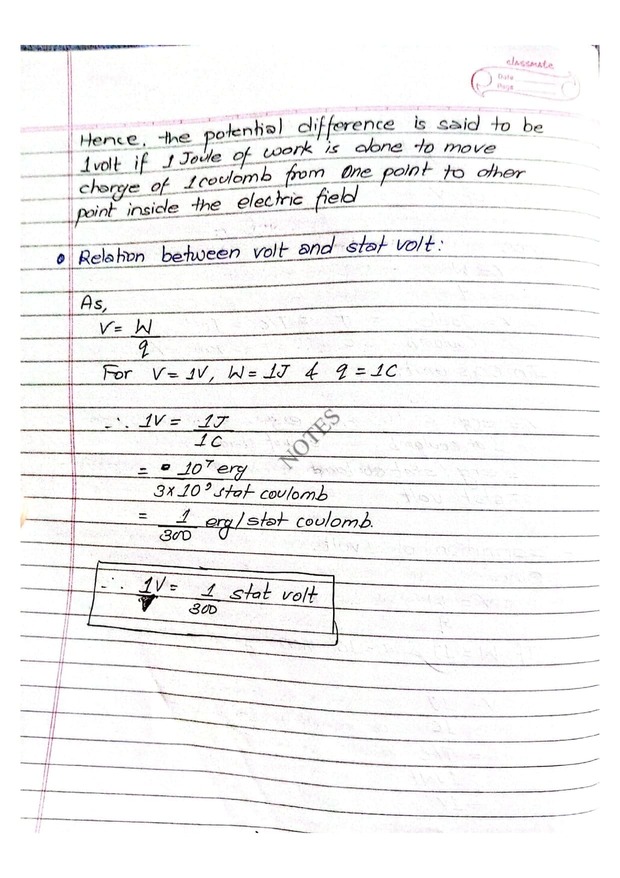 classmate
Date
Page
Hence, the potential difference is said to be
1volt if 1 Joule of work is done to move
charge of 1coulomb from One point to other
point inside the electric field
Relation between volt and stat volt:
As,
V = W
q
For V = 1V, W = 1J & q = 1C
∴ 1V = 1J
1C
= 10⁷ erg
3×10⁹ stat coulomb
= 1 erg/stat coulomb.
300
∴ 1V = 1 stat volt
300
NOTES